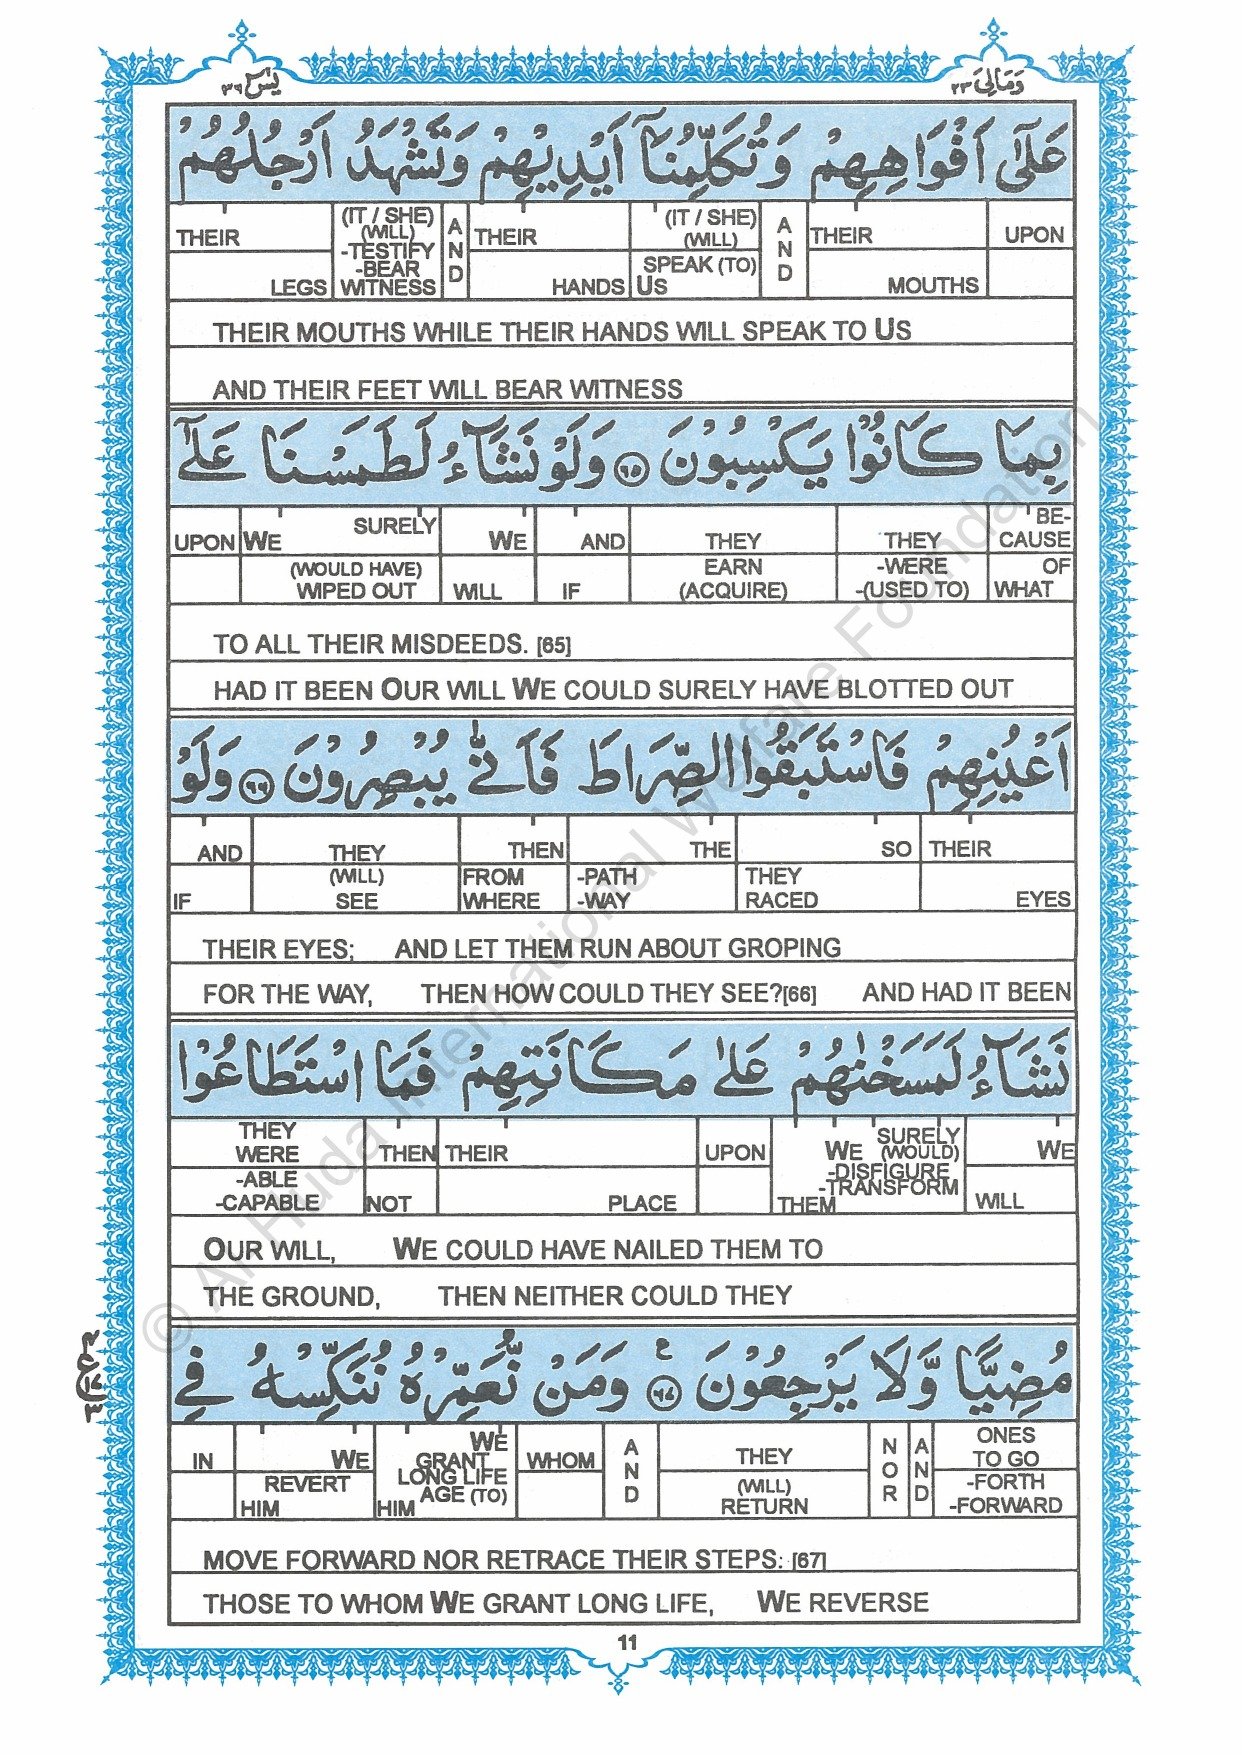 يٰسٓ ٣٦ وَمَالِىَ ٢٣
عَلٰٓى اَفْوَاهِهِمْ وَتُكَلِّمُنَآ اَيْدِيْهِمْ وَتَشْهَدُ اَرْجُلُهُمْ
THEIR (IT / SHE) (WILL) -TESTIFY -BEAR WITNESS AND THEIR (IT / SHE) (WILL) AND THEIR UPON
LEGS HANDS SPEAK (TO) US MOUTHS
THEIR MOUTHS WHILE THEIR HANDS WILL SPEAK TO US
AND THEIR FEET WILL BEAR WITNESS
بِمَا كَانُوْا يَكْسِبُوْنَ ﴿٦٥﴾ وَلَوْ نَشَآءُ لَطَمَسْنَا عَلٰٓى
UPON WE SURELY WE AND THEY THEY BE-CAUSE
(WOULD HAVE) WIPED OUT WILL IF EARN (ACQUIRE) -WERE -(USED TO) OF WHAT
TO ALL THEIR MISDEEDS. [65]
HAD IT BEEN OUR WILL WE COULD SURELY HAVE BLOTTED OUT
اَعْيُنِهِمْ فَاسْتَبَقُوا الصِّرَاطَ فَاَنّٰى يُبْصِرُوْنَ ﴿٦٦﴾ وَلَوْ
AND THEY THEN THE SO THEIR
IF (WILL) SEE FROM WHERE -PATH -WAY THEY RACED EYES
THEIR EYES; AND LET THEM RUN ABOUT GROPING
FOR THE WAY, THEN HOW COULD THEY SEE?[66] AND HAD IT BEEN
نَشَآءُ لَمَسَخْنٰهُمْ عَلٰى مَكَانَتِهِمْ فَمَا اسْتَطَاعُوْا
THEY WERE THEN THEIR UPON WE SURELY (WOULD) WE
-ABLE -CAPABLE NOT PLACE -DISFIGURE -TRANSFORM THEM WILL
OUR WILL, WE COULD HAVE NAILED THEM TO
THE GROUND, THEN NEITHER COULD THEY
مُضِيًّا وَّلَا يَرْجِعُوْنَ ﴿٦٧﴾ ع وَمَنْ نُّعَمِّرْهُ نُنَكِّسْهُ فِى
IN WE WE GRANT LONG LIFE AGE (TO) HIM WHOM AND THEY NOR AND ONES TO GO
REVERT HIM (WILL) RETURN -FORTH -FORWARD
MOVE FORWARD NOR RETRACE THEIR STEPS: [67]
THOSE TO WHOM WE GRANT LONG LIFE, WE REVERSE
11
© Al Huda International Welfare Foundation